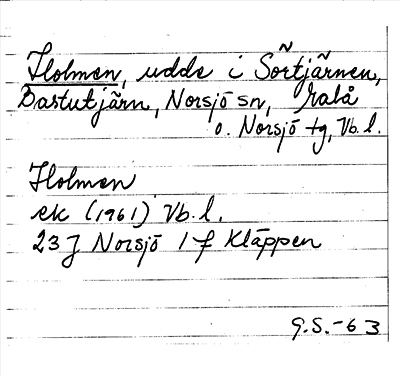 Holmen, udde i Sörtjärnen,
Bastutjärn, Norsjö sn, Malå
o. Norsjö tg, Vb. l.
Holmen
ek (1961) Vb. l.
23 J Norsjö 1 f Kläppen
G.S.-63